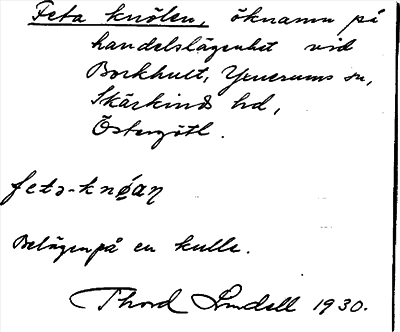 Feta knölen, öknamn på
handelslägenhet vid
Borkhult, Yxnerums sn,
Skärkinds hd,
Östergötl.
fetə-knǿaɳ
Belägen på en kulle.
Thord Lindell 1930.